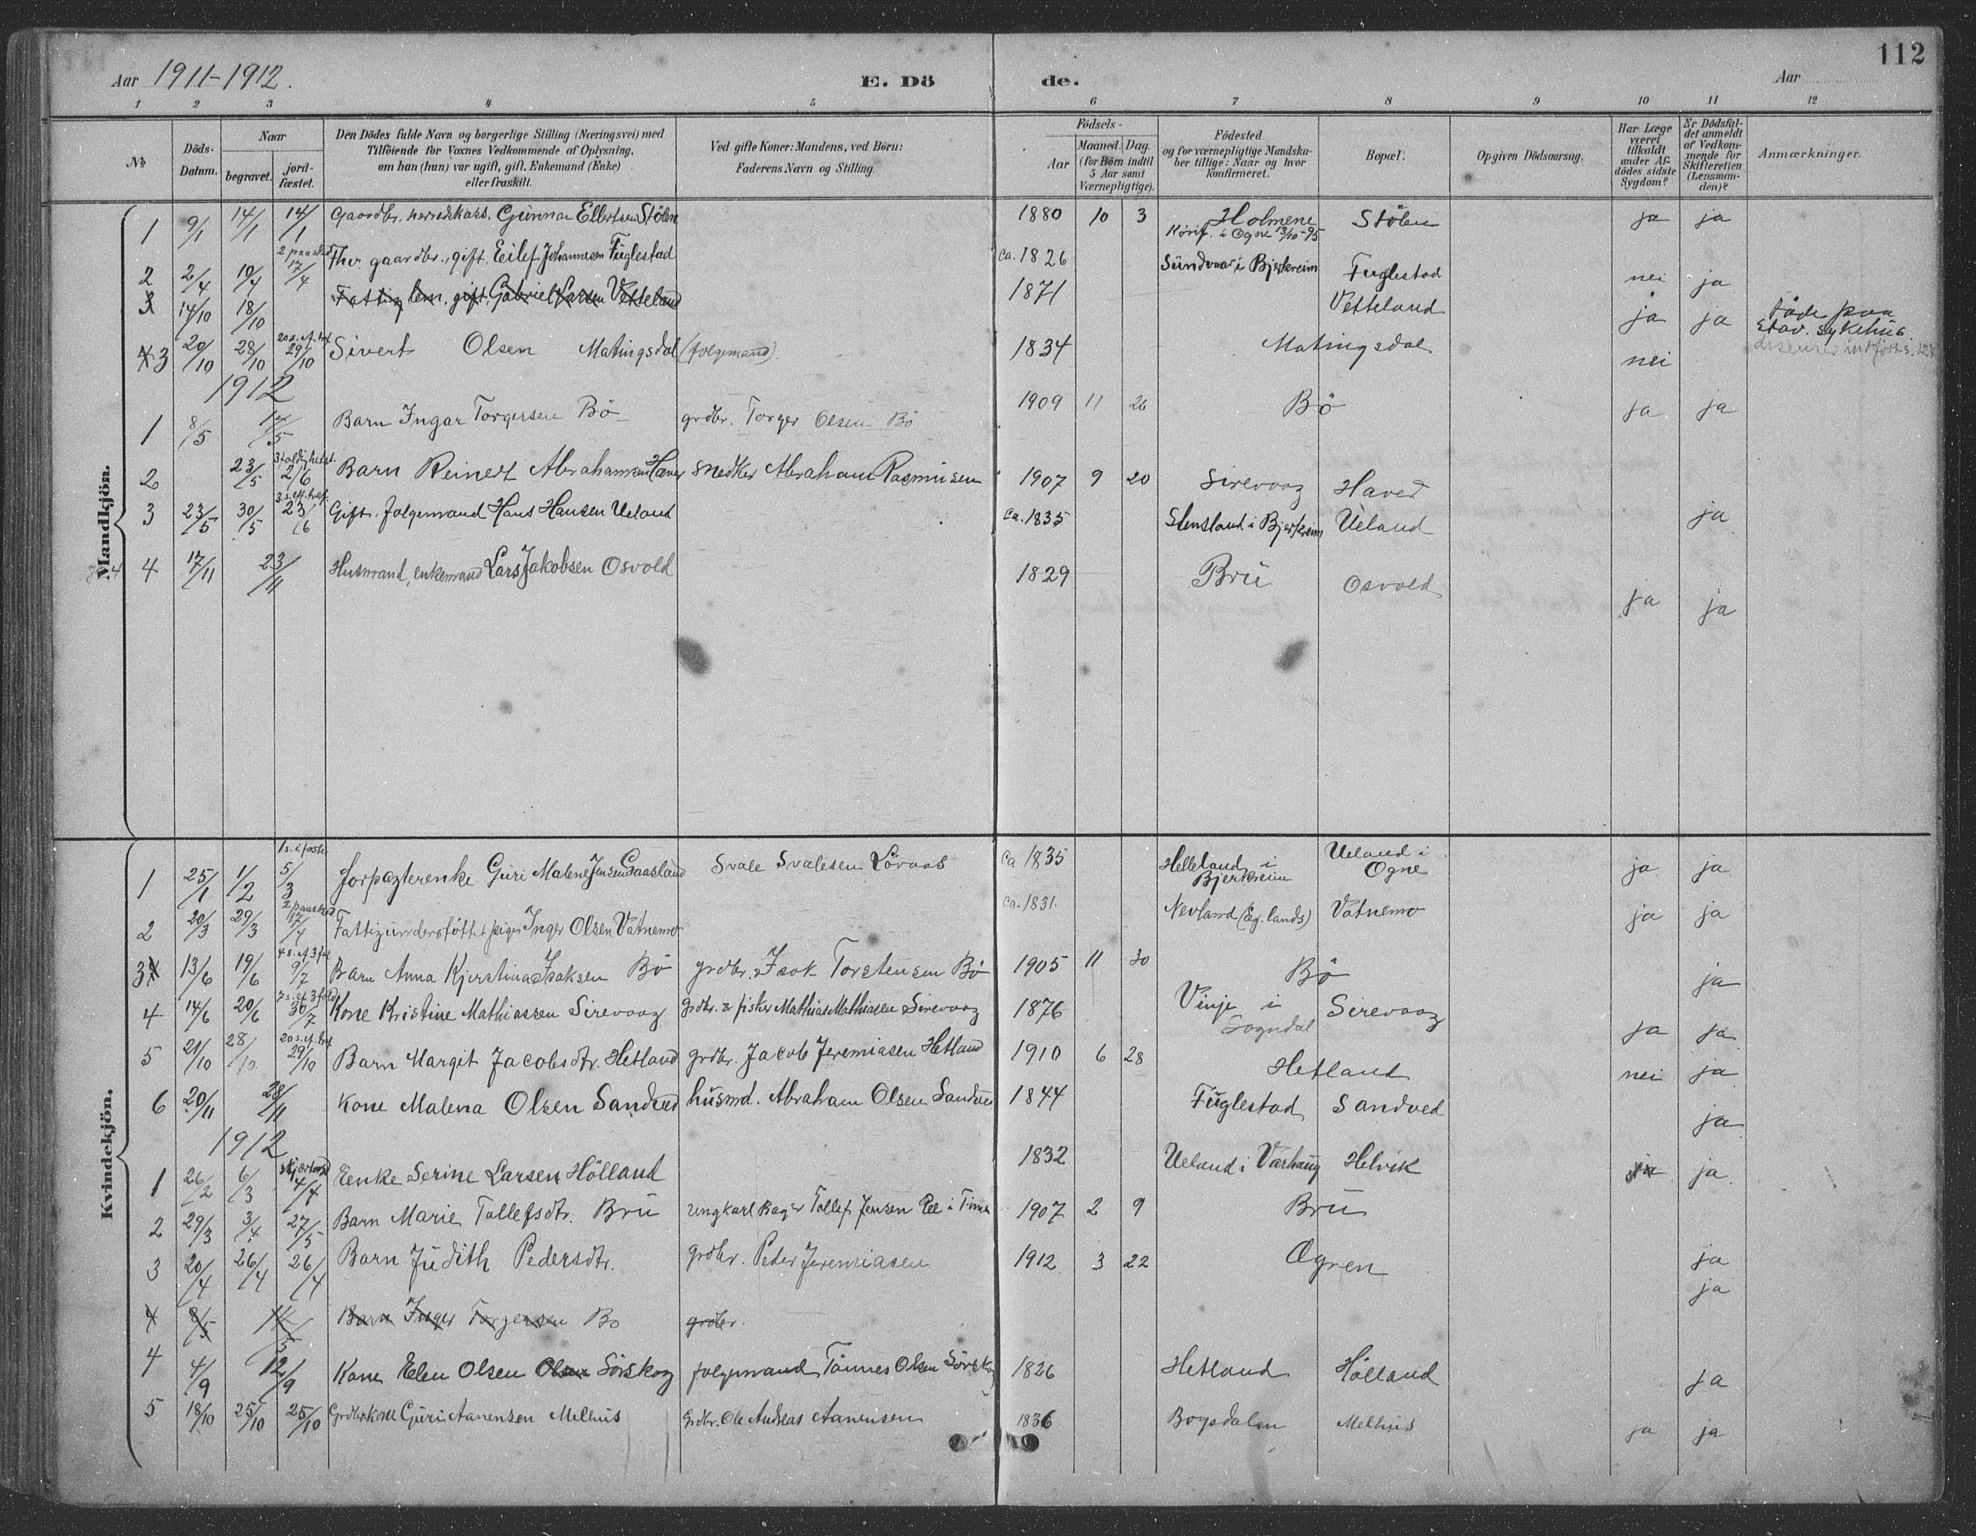 112
Aar 1911-1912. E. Dö de. Aar
1 2 3 4 5 6 7 8 9 10 11 12
№ Döds-Datum. Naar begravet. jordfæstet. Den Dödes fulde Navn og borgerlige Stilling (Næringsvei) med Tilföiende for Voxnes Vedkommende af Oplysning, om han (hun) var ugift, gift, Enkemand (Enke) eller fraskilt. Ved gifte Koner: Mandens, ved Börn: Faderens Navn og Stilling. Födsels- Aar Maaned. Dag. (for Børn indtil 5 Aar samt Værnepligtige). Födested og for værnepligtige Mandskaber tillige: Naar og hvor konfirmeret. Bopæl. Opgiven Dödsaarsag. Har Læge været tilkaldt under Afdödes sidste Sygdom? Er Dödsfaldet anmeldt af Vedkommende for Skifteretten (Lensmanden)? Anmærkninger.
Mandkjön.
1 9/1 14/1 14/1 Gaardbr. Gunnar Ellertsen Stölen 1880 10 3 Holmene Konf. i Ogne 13/10-95 Stölen ja ja
2 2/4 10/4 17/4 Fhv. gaardbr., gift. Eilef Johannesen Fuglestad ca. 1826 Sundvor i Bjerkreim Fuglestad nei ja
3 14/10 18/10 Fattiglem, gift, Gabriel Larsen Vetteland 1871 Vetteland ja ja Döde paa Stav. sykehus
3 20/10 28/10 20 s. ef. tref 29/10 Sivert Olsen Matingsdal (folgemand). 1834 Matingsdal nei
1912
1 8/5 14/5 Barn Ingar Torgersen Bö grdbr. Torger Olsen Bö 1909 11 26 Bö ja ja
2 23/5 2/6 Barn Reinert Abrahamsen snedker Abraham Rasmusen 1907 9 20 Sirevaag Haver
3 23/5 30/5 23/6 Gift. folgemand Hans Hansen Ueland ca. 1835 Slensland i Bjerkreim Ueland ja
4 17/11 23/11 Husmand, enkemand Lars Jakobsen Osvold 1829 Brü Osvold ja ja
Kvindekjön.
1 25/1 1/2 1 s. i faste 5/3 forpagterenke Guri Malene Jensen Gaasland Svale Svalesen Lövaas ca 1835 Helleland i Bjerkreim Ueland i Ogne ja ja
2 20/3 29/3 17/4 Fattigunderstöttet pige Inger Olsen Vatnemo ca. 1831. Nevland (Eg. lands) Vatnemo ja ja
3 13/6 19/6 9/7 Barn Anna Kjerstina Isaksen Bö grdbr. Isak Torstensen Bö 1905 11 30 Bö ja
4 14/6 20/6 30/7 Kone Kristine Mathiassen Sirevaag grdbr. & fisker Mathias Mathiasen Sirevaag 1876 Vinje i Sogndal Sirevaag ja ja
5 21/10 28/10 20 s. ef. tref 29/10 Barn Margit Jacobsdtr. Hetland grdbr. Jacob Jeremiasen Hetland 1910 6 28 Hetland nei ja
6 20/11 28/11 Kone Malena Olsen Sandved husmd. Abraham Olsen Sandved 1844 Fuglestad Sandved ja
1912
1 26/2 6/3 4/4 Eenke Serine Larsen Hölland 1832 Ueland i Varhaug Helvik ja ja.
2 29/3 3/4 27/5 Barn Marie Tollefsdtr. Brü ungkarl Bager Tollef Jensen Ree i Time 1907 2 9 Brü
3 20/4 26/4 26/4 Barn Judith Pedersdtr. grdbr. Peder Jeremiasen 1912 3 22 Ognen ja
ja
4 8/5 14/5 Barn Inger Torgersen Bö grdbr.
4 4/9 12/9 Kone Elen Olsen Olsen Sörskog folgemand Tönnes Olsen Sörskog 1826 Hetland Hölland ja
5 18/10 25/10 25/10 Grdbrkone Guri Aanensen Melhus Grdbr. Ole Andreas Aanensen 1836 Bogsdalen Melhus ja ja